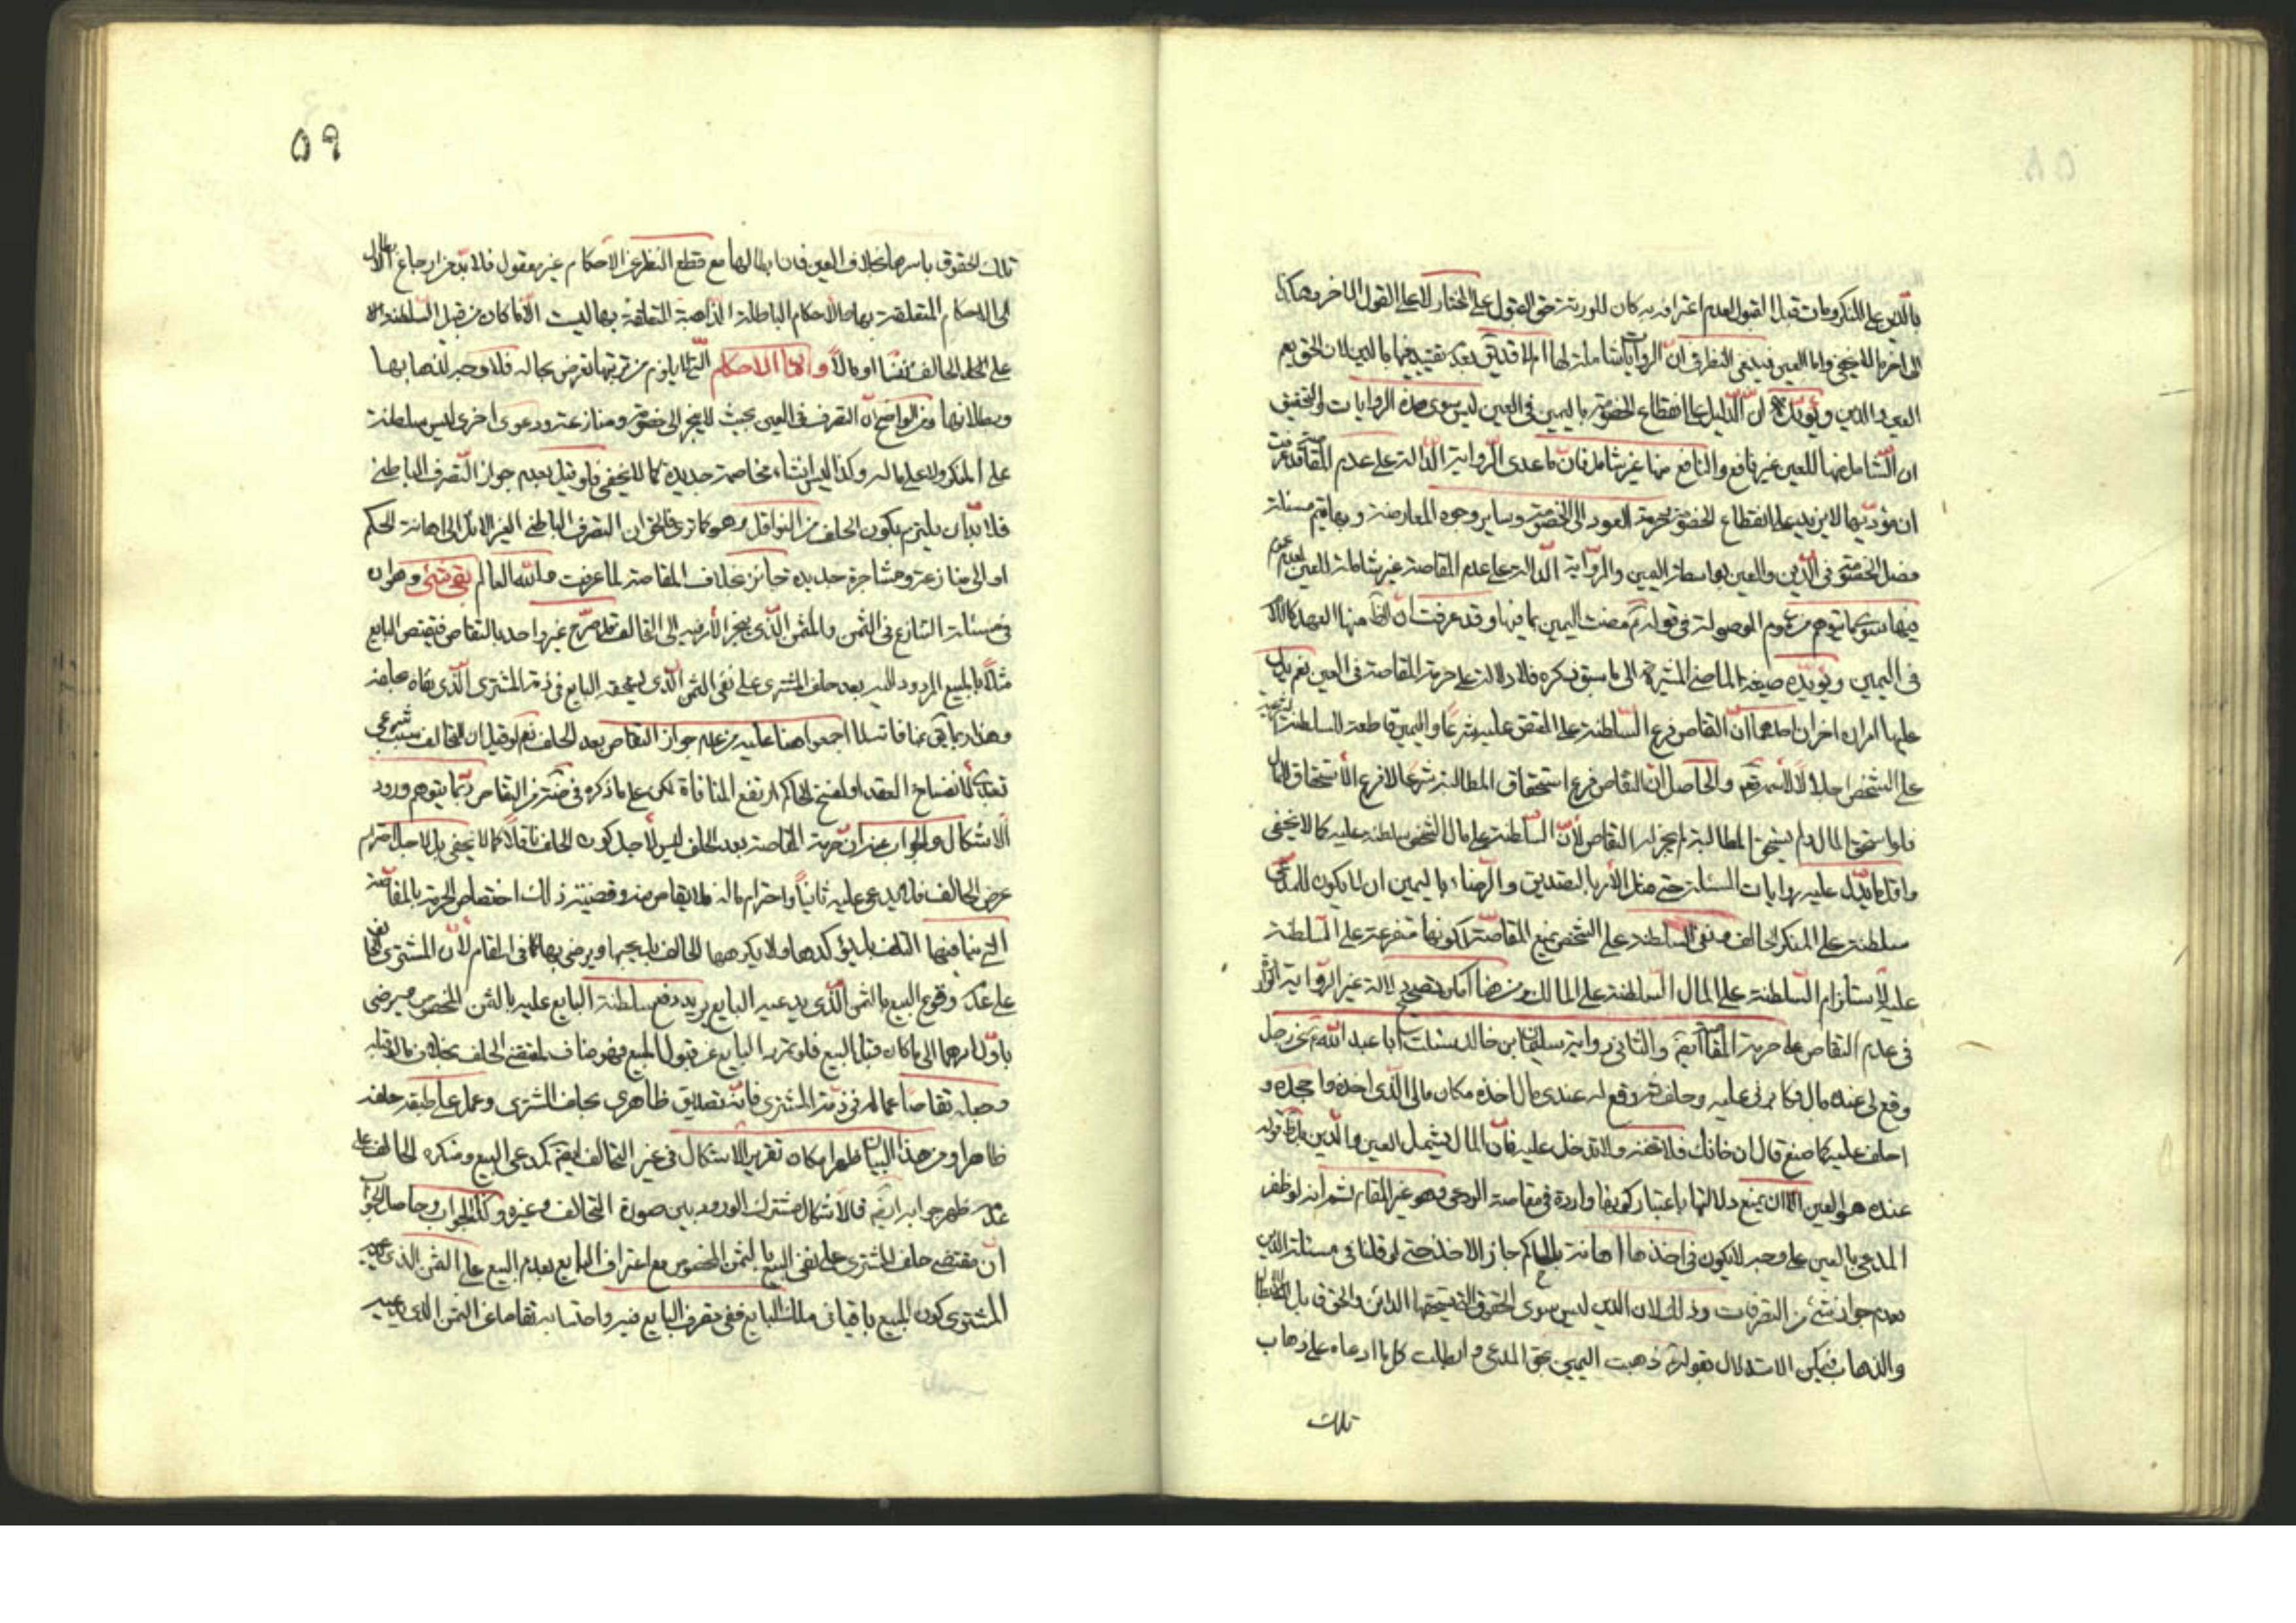 بالدين على المنكر ومات قبل القبول لعدم اعترافه به كان للورثة حق القبول على المختار لا على القول الآخر وهكذا
الى آخر ما لا يخفى واما العين فينبغى النظر فى ان الروايات شاملة لها ام لا قد يقال بعد تقييدها بالدين لان الحق يعم
العين والدين ويؤيده ان الدليل على انقطاع الخصومة باليمين فى العين ليس سوى هذه الروايات والتحقيق
ان الشامل منها للعين غير نافع والنافع منها غير شامل فان ما عدى الرواية الدالة على عدم المقاصة عرفت
ان مؤديها لا يزيد على انقطاع الخصومة بحرمة العود الى الخصومة وساير وجوه المعارضة وبها يتم مسئلة
فصل الخصومة فى الدين والعين بواسطة اليمين والرواية الدالة على عدم المقاصة غير شاملة للعين لعدم عموم
فيها سوى ما يتوهم من عموم الموصولة فى قوله مضت اليمين بما فيها وقد عرفت ان الظ منها العهد كاللام
فى اليمين ويؤيده صيغة الماضى المشيرة الى ما سبق ذكره فلا دلالة على حرمة المقاصة فى العين نعم يدل
عليها امران اخران احدهما ان التقاص فرع السلطنة على المقتص عليه شرعا واليمين قاطعة للسلطنة
على الشخص والحاصل ان التقاص فرع استحقاق المطالبة شرعا لا فرع الاستحقاق للمال
فلو استحق المال ولم يستحق المطالبة لم يجز له التقاص لان السلطنة على مال الشخص سلطنة عليه كما لا يخفى
واقل ما يدل عليه روايات المسئلة حتى مثل الامر بالتصديق والرضاء باليمين ان لا يكون للمدعى
سلطنة على المنكر الحالف ونفى السلطنة على الشخص يمنع المقاصة لكونها متفرعة على السلطنة
عليه لاستلزام السلطنة على المال السلطنة على المالك ومن هنا امكن تصحيح دلالة غير الرواية الواردة
فى عدم التقاص على حرمة المقاصة ايضا والثانى رواية سليمان بن خالد سئلت ابا عبد الله عن رجل
وقع لى عنده مال وكابرنى عليه وحلف ثم وقع له عندى مال آخذه مكان مالى الذى اخذه واجحده و
احلف عليه كما صنع قال ان خانك فلا تخنه ولا تدخل عليه فان المال يشمل العين والدين بل ظ قوله
عنده هو العين الا ان يمنع دلالتها باعتبار كونها واردة فى مقاصة الودعى وهو غير المقام ثم انه لو ظفر
المدعى بالعين على وجه لا يكون فى اخذها اهانة بالحاكم جاز الاخذ حتى لو قلنا فى مسئلة الدين
بعدم جواز شئ من التصرفات وذلك لان الدين ليس سوى الحقوق التى يستحقها الدائن والحق قابل للاسقاط
والذهاب فيمكن الاستدلال بقوله ذهبت اليمين بحق المدعى وابطلت كل ما ادعاه على ذهاب
تلك
٥٩
تلك الحقوق باسرها بخلاف العين فان ابطالها مع قطع النظر عن الاحكام غير معقول فلا بد من ارجاع الابطال
الى الاحكام المتعلقة بها والاحكام الباطلة الذاهبة المتعلقة بها ليست الا ما كان من قبيل السلطنة
على الحالف نفسا او مالا واما الاحكام التى لا يلزم من ترتبها تعرض بحاله فلا وجه لذهابها
وبطلانها ومن الواضح ان التصرف فى العين بحيث لا ينجر الى خصومة ومنازعة ودعوى اخرى ليس سلطنة
على المنكر ولا على ماله وكذا ليس انشاء مخاصمة جديدة كما لا يخفى فلو قيل بعدم جواز التصرف الباطنى
فلا بد ان يلتزم بكون الحلف من النواقل وهو كما ترى فالحق ان التصرف الباطنى الغير الآئل الى اهانة الحكم
او الى منازعة ومشاجرة جديدة جائز بخلاف المقاصة لما عرفت والله العالم بقى شئ وهو ان
فى مسئلة التنازع فى الثمن والمثمن الذى ينجر الامر فيه الى التحالف قد صرح غير واحد بالتقاص فيقتص البايع
مثلا بالمبيع المردود اليه بعد حلف المشترى على نفى الثمن الذى يستحقه البايع فى ذمة المشترى الذى نفاه بحلفه
وهذا ربما يتراءى منافاته لما اجمعوا هنا عليه من عدم جواز التقاص بعد الحلف نعم لو قيل ان التحالف سبب شرعى
تعبدى لانفساخ العقد او لفسخ الحاكم ارتفع المنافاة لكن على ما ذكره فى من التقاص ربما يتوهم ورود
الاشكال والجواب عنه ان حرمة المقاصة بعد الحلف ليس لاجل كون الحلف ناقلا كما لا يخفى بل لاجل احترام
عرض الحالف فلا يدعى عليه ثانيا واحترام ماله فلا يقاص منه وقضية ذلك اختصاص الحرمة بالمقاصة
التى ينافيها الحلف لا ما يؤكدها ولا يكرهها الحالف بل يحبها ويرضى بها كما فى المقام لان المشترى الحالف
على عدم وقوع البيع بالثمن الذى يدعيه البايع يريد دفع سلطنة البايع عليه بالثمن المخصوص ويرضى
باول امرهما الى ما كان قبل البيع فلو تمرد البايع عن قبول المبيع فهو مناف لمقتضى الحلف بخلاف ما لو قبله
وجعله تقاصا عما له فى ذمة المشترى فانه تصديق ظاهرى بحلف المشترى وعمل على طبقه حلفه
ظاهرا ومن هذا البيان ظهر امكان تقرير الاشكال فى غير التحالف ايضا كمدعى البيع ومنكره الحالف على
عدمه وظهر جوابه ايضا فالاشكال مشترك الورود بين صورة التحالف وغيره وكذا الجواب وحاصل الجواب
ان مقتضى حلف المشترى على نفى البيع بالثمن المخصوص مع اعتراف البايع بعدم البيع على الثمن الذى يدعيه
المشترى كون المبيع باقيا فى ملك البايع ففى تصرف البايع فيه واحتسابه تقاصا عن الثمن الذى يدعيه